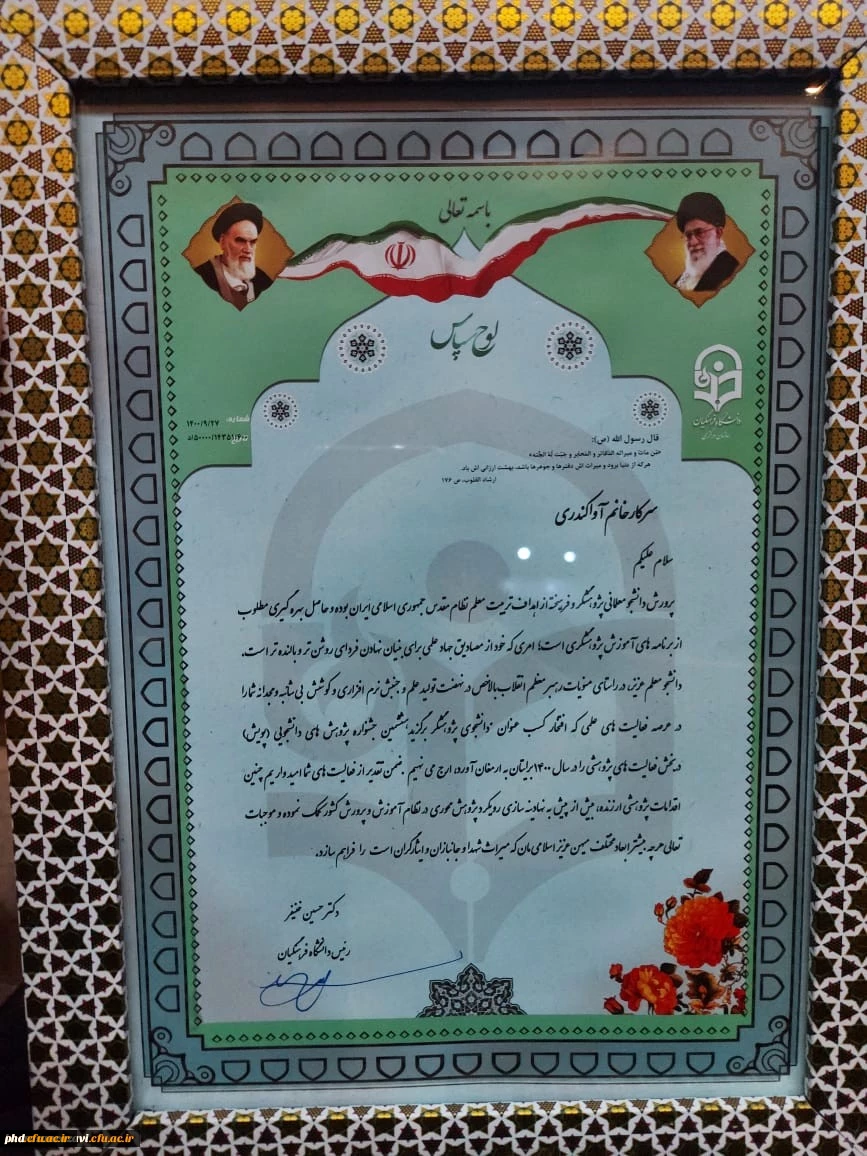 باسمه تعالی
لوح سپاس
دانشگاه فرهنگیان
سازمان مرکزی
شماره: ۱۴۰۰/۹/۲۷
۵۰۰۰۰/۱۴۳۵۱/۶۰۰/د
قال رسول الله (ص):
«مَن ماتَ و میراثه الدَّفاتر و المَحابِر و جَبَت لَهُ الجَنَّه»
هرکه از دنیا برود و میراث اش دفترها و جوهرها باشد، بهشت ارزانی اش باد.
ارشاد القلوب، ص ۱۷۶
سرکار خانم آوا کندری
سلام علیکم
پرورش دانشجو معلمانی پژوهشگر و فرهیخته از اهداف تربیت معلم نظام مقدس جمهوری اسلامی ایران بوده و حاصل بهره گیری مطلوب
از برنامه های آموزش پژوهشگری است؛ امری که خود از مصادیق جهاد علمی برای بنیان نهادن فردای روشن تر و بالنده تر است.
دانشجو معلم عزیز، در راستای منویات رهبر معظم انقلاب بالاخص در نهضت تولید علم و جنبش نرم افزاری و کوشش بی شائبه و مجدانه شما را
در عرصه فعالیت های علمی که افتخار کسب عنوان "دانشجوی پژوهشگر برگزیده" هشتمین جشنواره پژوهش های دانشجویی (پویش)
در بخش فعالیت های پژوهشی را در سال ۱۴۰۰ برایتان به ارمغان آورد، ارج می نهیم. ضمن تقدیر از فعالیت های شما امید واریم چنین
اقدامات پژوهشی ارزنده، بیش از پیش به نهادینه سازی رویکرد پژوهش محوری در نظام آموزش و پرورش کشور کمک نموده و موجبات
تعالی هرچه بیشتر ابعاد مختلف میهن عزیز اسلامی مان که میراث شهدا و جانبازان و ایثارگران است را فراهم سازد.
دکتر حسین خنیفر
رئیس دانشگاه فرهنگیان